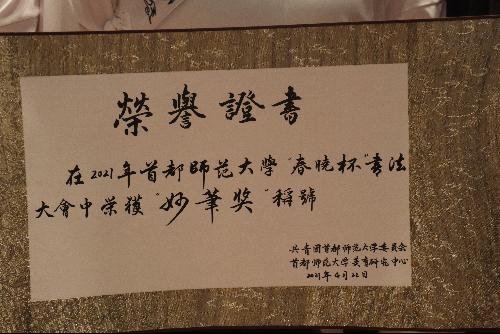 榮譽證書
在2021年首都師范大學"春曉杯"書法
大會中荣獲"妙筆奖"稱號
共青团首都师范大学委員会
首都师范大学美育研究中心
2021年4月22日